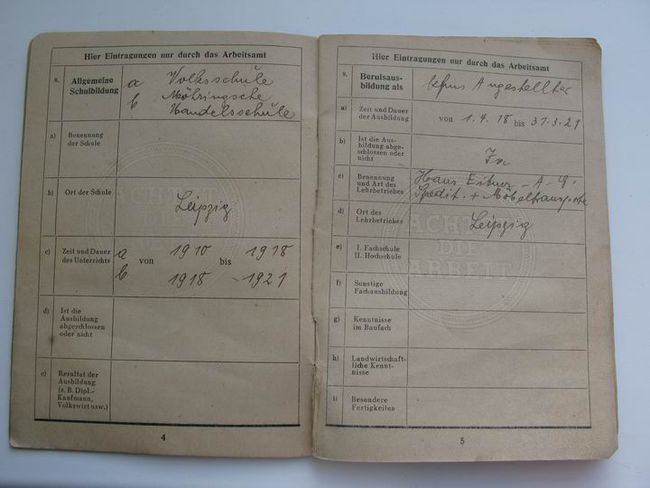 Hier Eintragungen nur durch das Arbeitsamt
8. Allgemeine Schulbildung
a Volksschule
b Möhringsche
Handelsschule
a) Benennung
der Schule
b) Ort der Schule
Leipzig
c) Zeit und Dauer
des Unterrichts
a von 1910 bis 1918
b 1918 - 1921
d) Ist die
Ausbildung
abgeschlossen
oder nicht
e) Resultat der
Ausbildung
(z. B. Dipl.-
Kaufmann,
Volkswirt usw.)
4
Hier Eintragungen nur durch das Arbeitsamt
9. Berufsaus-
bildung als
Angestellter
a) Zeit und Dauer
der Ausbildung
von 1.4.18 bis 31.3.21
b) Ist die Aus-
bildung abge-
schlossen oder
nicht
Ja
c) Benennung
und Art des
Lehrbetriebes
Hans - A - G.
Spedit. + Möbeltransporte
d) Ort des
Lehrbetriebes
Leipzig
e) I. Fachschule
II. Hochschule
f) Sonstige
Fachausbildung
g) Kenntnisse
im Baufach
h) Landwirtschaft-
liche Kennt-
nisse
i) Besondere
Fertigkeiten
5
ACHTET
DIE
ARBEIT
ACHTET
DIE
ARBEIT